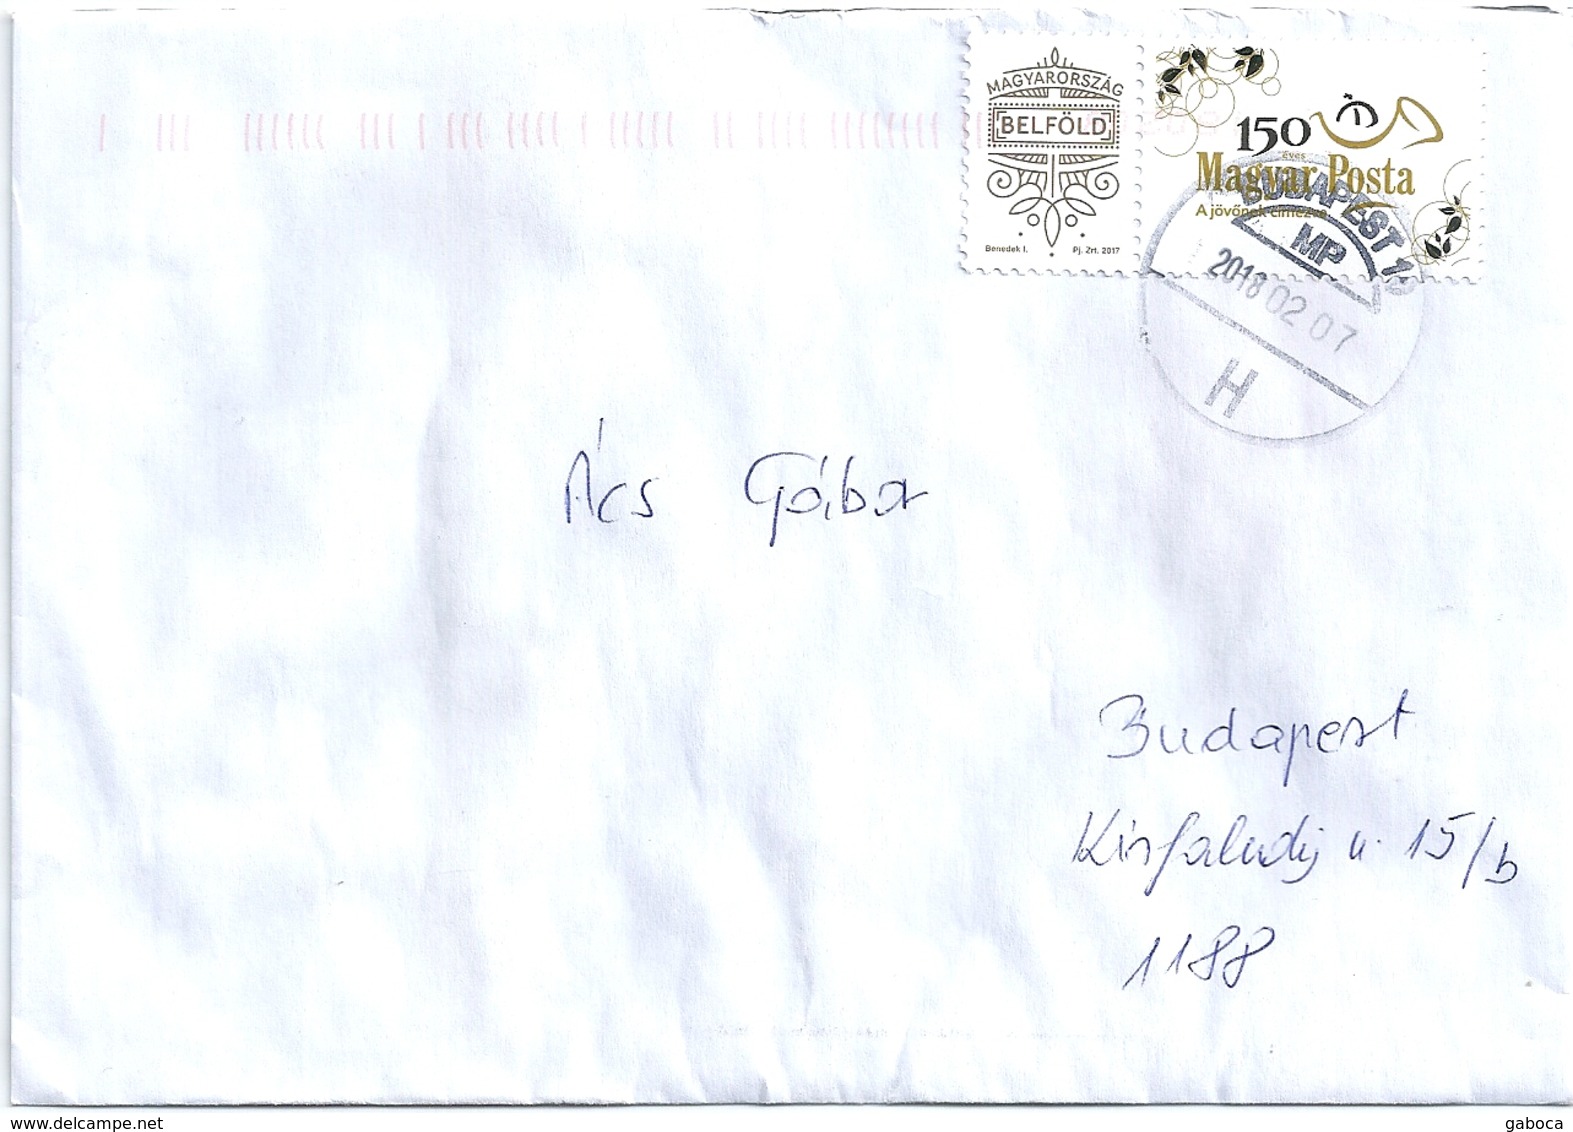 MAGYARORSZÁG
BELFÖLD
Benedek I. Pj. Zrt. 2017
150
éves
Magyar Posta
A jövőnek címezve
BUDAPEST
MP
2018 02 07
H
Ács Gábor
Budapest
Kisfaludy u. 15/b
1188
delcampe.net
gaboca